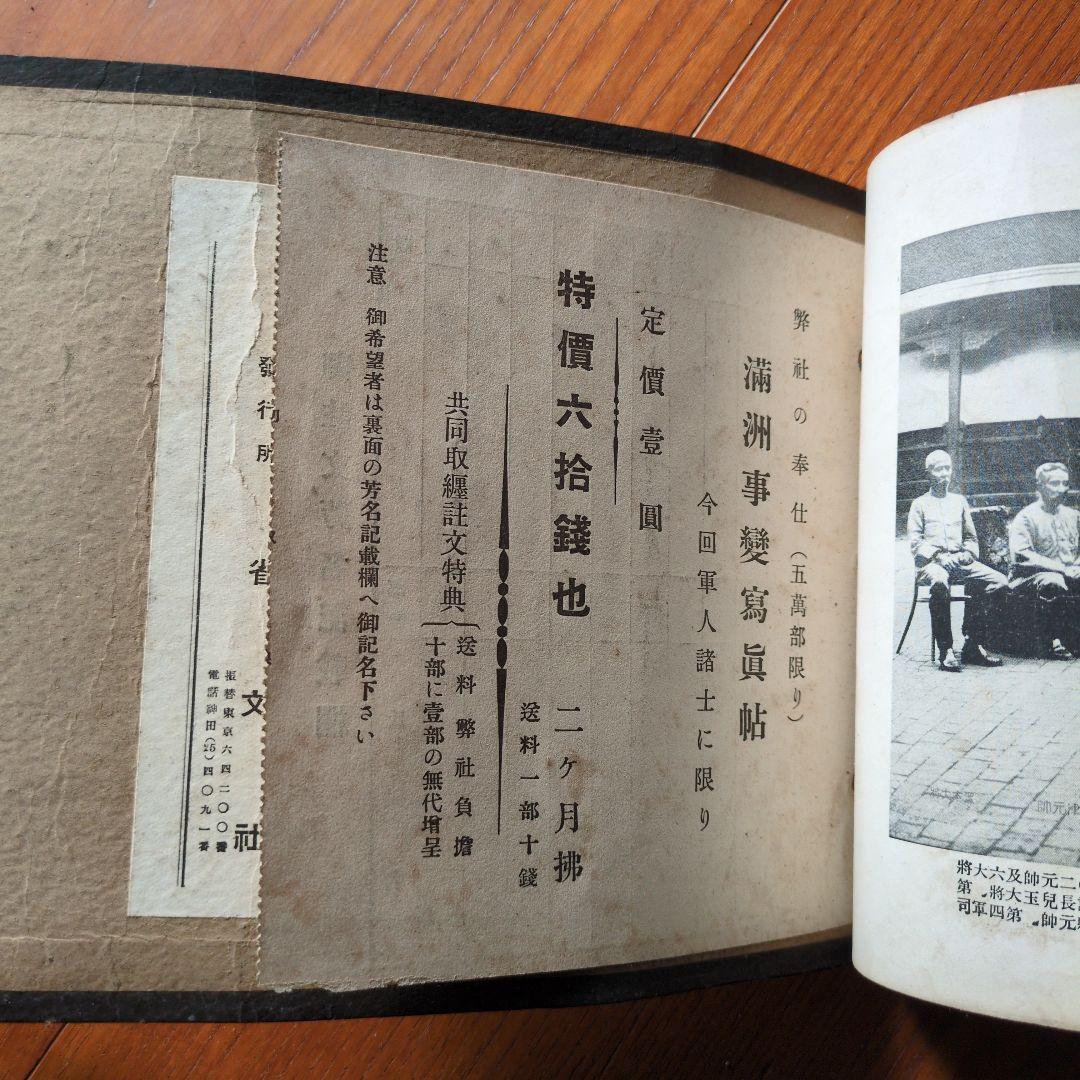 弊社の奉仕(五萬部限り)
滿洲事變寫眞帖
今回軍人諸士に限り
定價壹圓
特價六拾錢也 二ヶ月拂
送料一部十錢
共同取纒註文特典
送料弊社負擔
十部に壹部の無代增呈
注意 御希望者は裏面の芳名記載欄へ御記名下さい
發行所
省文社
振替東京六四二〇〇番
電話神田(25)四〇九一番
二元帥及六大將
長兒玉大將、第
元帥、第四軍司